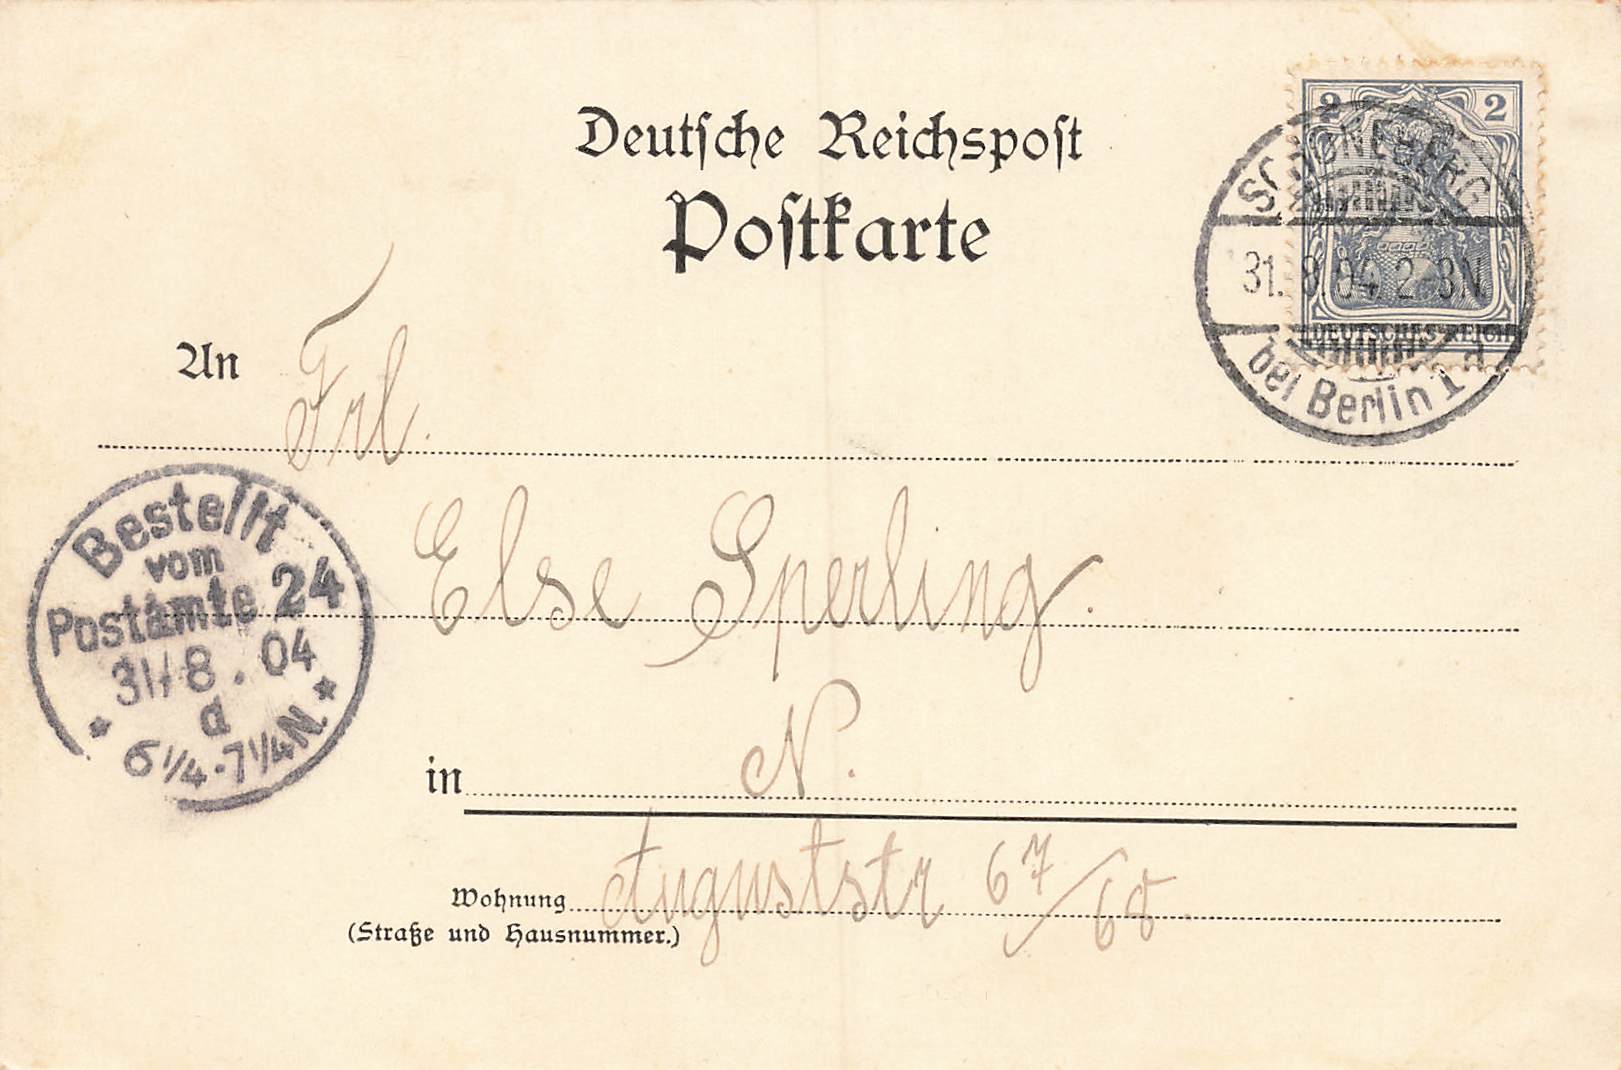 Deutsche Reichspost
Postkarte
2 2
DEUTSCHES REICH
SCHÖNEBERG
31.8.04. 2-3N.
bei Berlin 1 d
An Frl.
Else Sperling.
in N.
Wohnung Auguststr 67/68.
(Straße und Hausnummer.)
Bestellt
vom
Postamte 24
31/8.04
d
* 6 1/4-7 1/4N. *